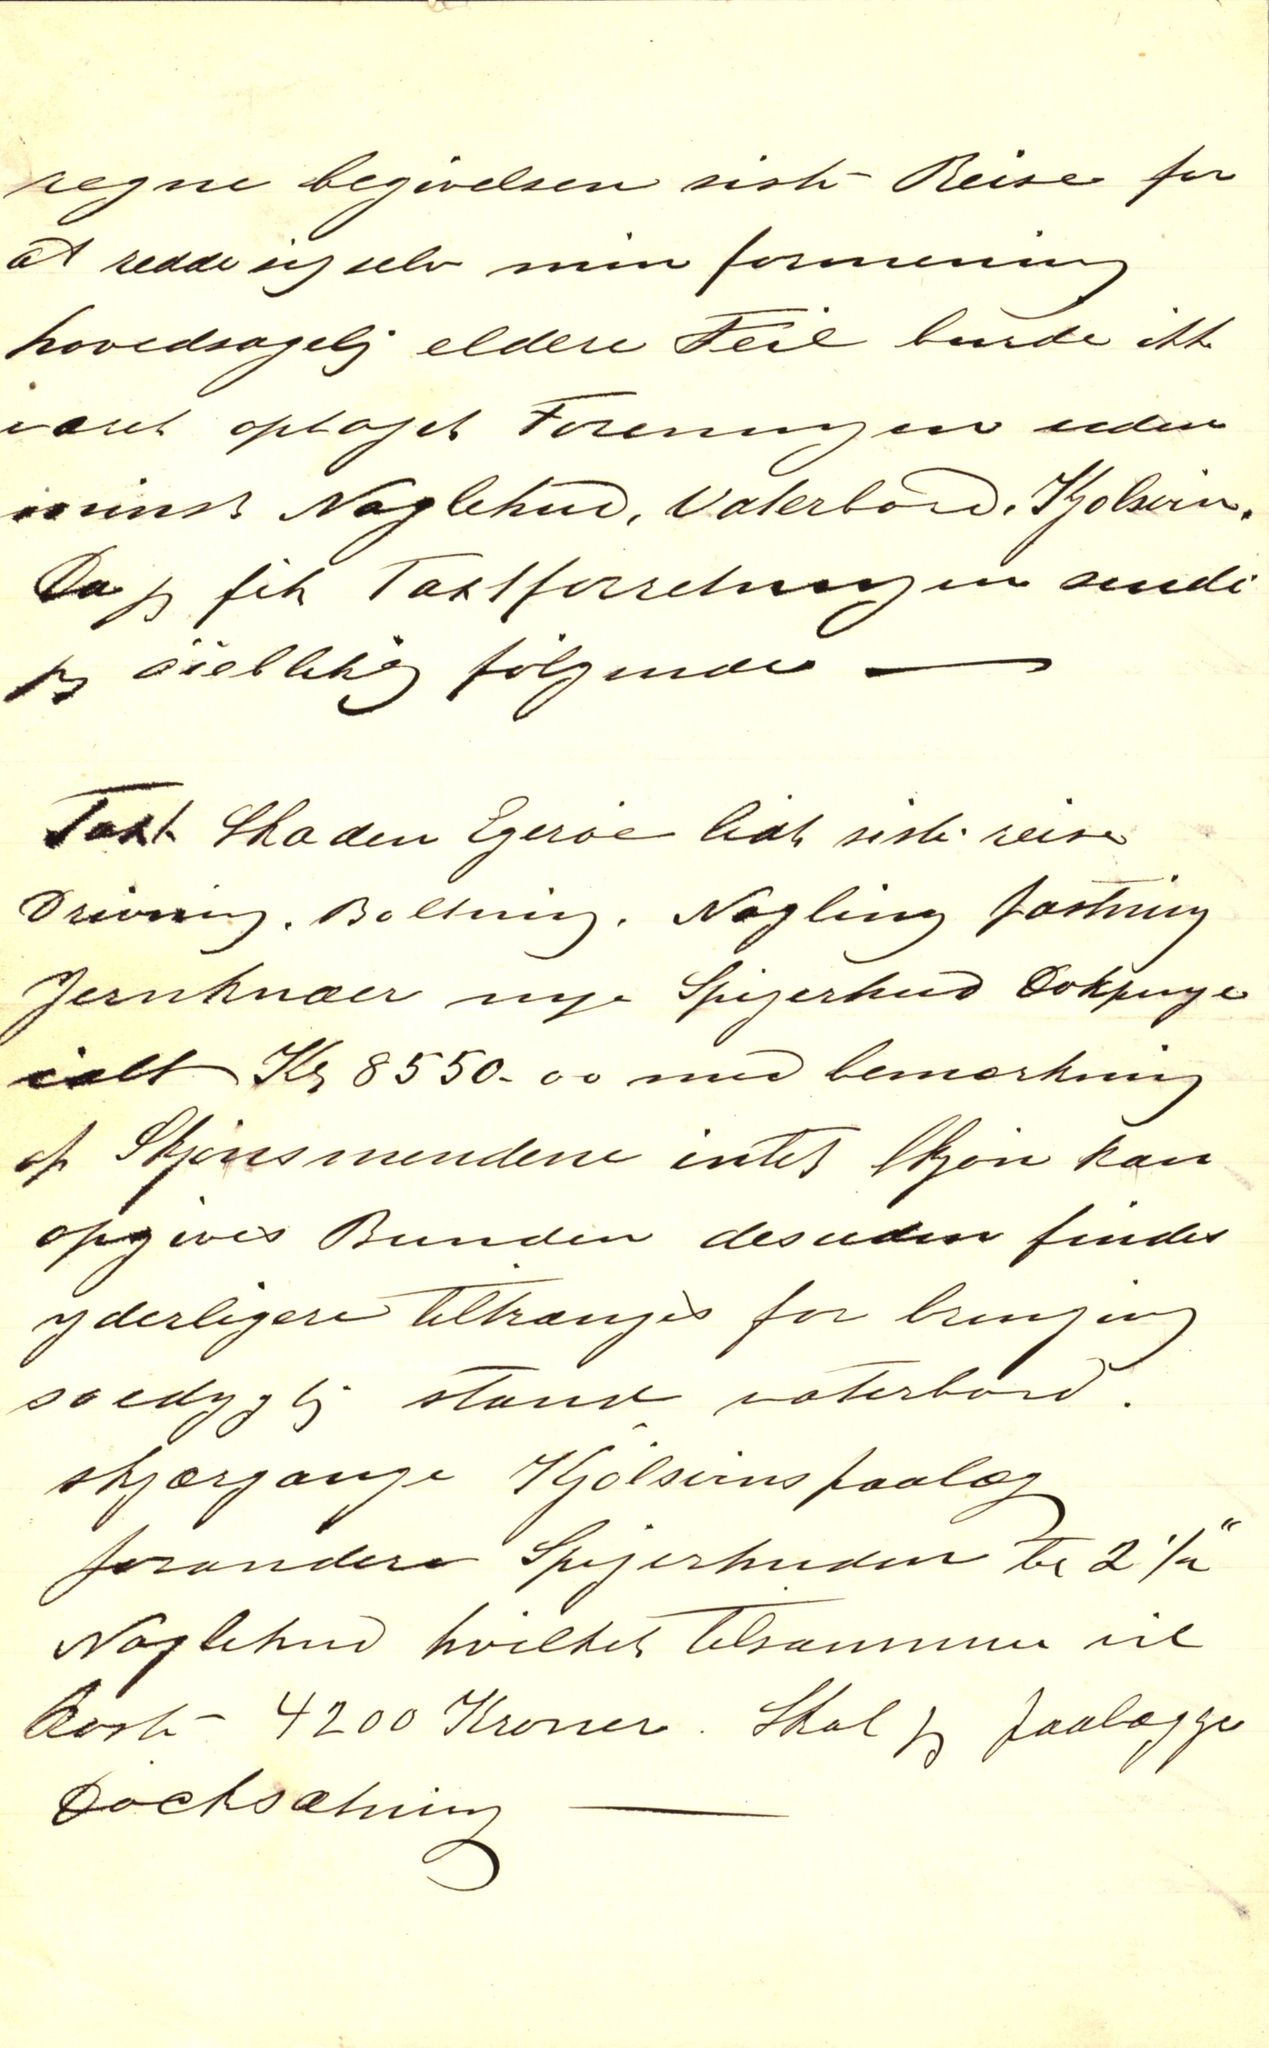 regne begivelsen siste Reise for
at redde sig selv min formening
hovedsagelig eldere Feil burde ikke
været optaget Foreningen uden
minst Naglehud, Vaterbord, Kjølsvin.
Da jeg fik Taxtforretningen sendte
jeg øieblikkelig følgende —
Taxt Skaden Egerøe lidt siste reise
Drivning. Boltning. Nagling fæstning
Jernknæer nye Spigerhud Dokpenge
ialt Kr 8550-00 med bemærkning
af Skjønsmendene intet Skjøn kan
opgives Bunden desuden findes
yderligere tiltrænges for bringing
soedygtig stand vaterbord.
skjærgange Kjølsvinspaalæg
forandere Spigerhuden til 2 1/2"
Naglehud hvilket tilsammen vil
koste 4200 Kroner. Skal jeg paalægge
Docksætning —